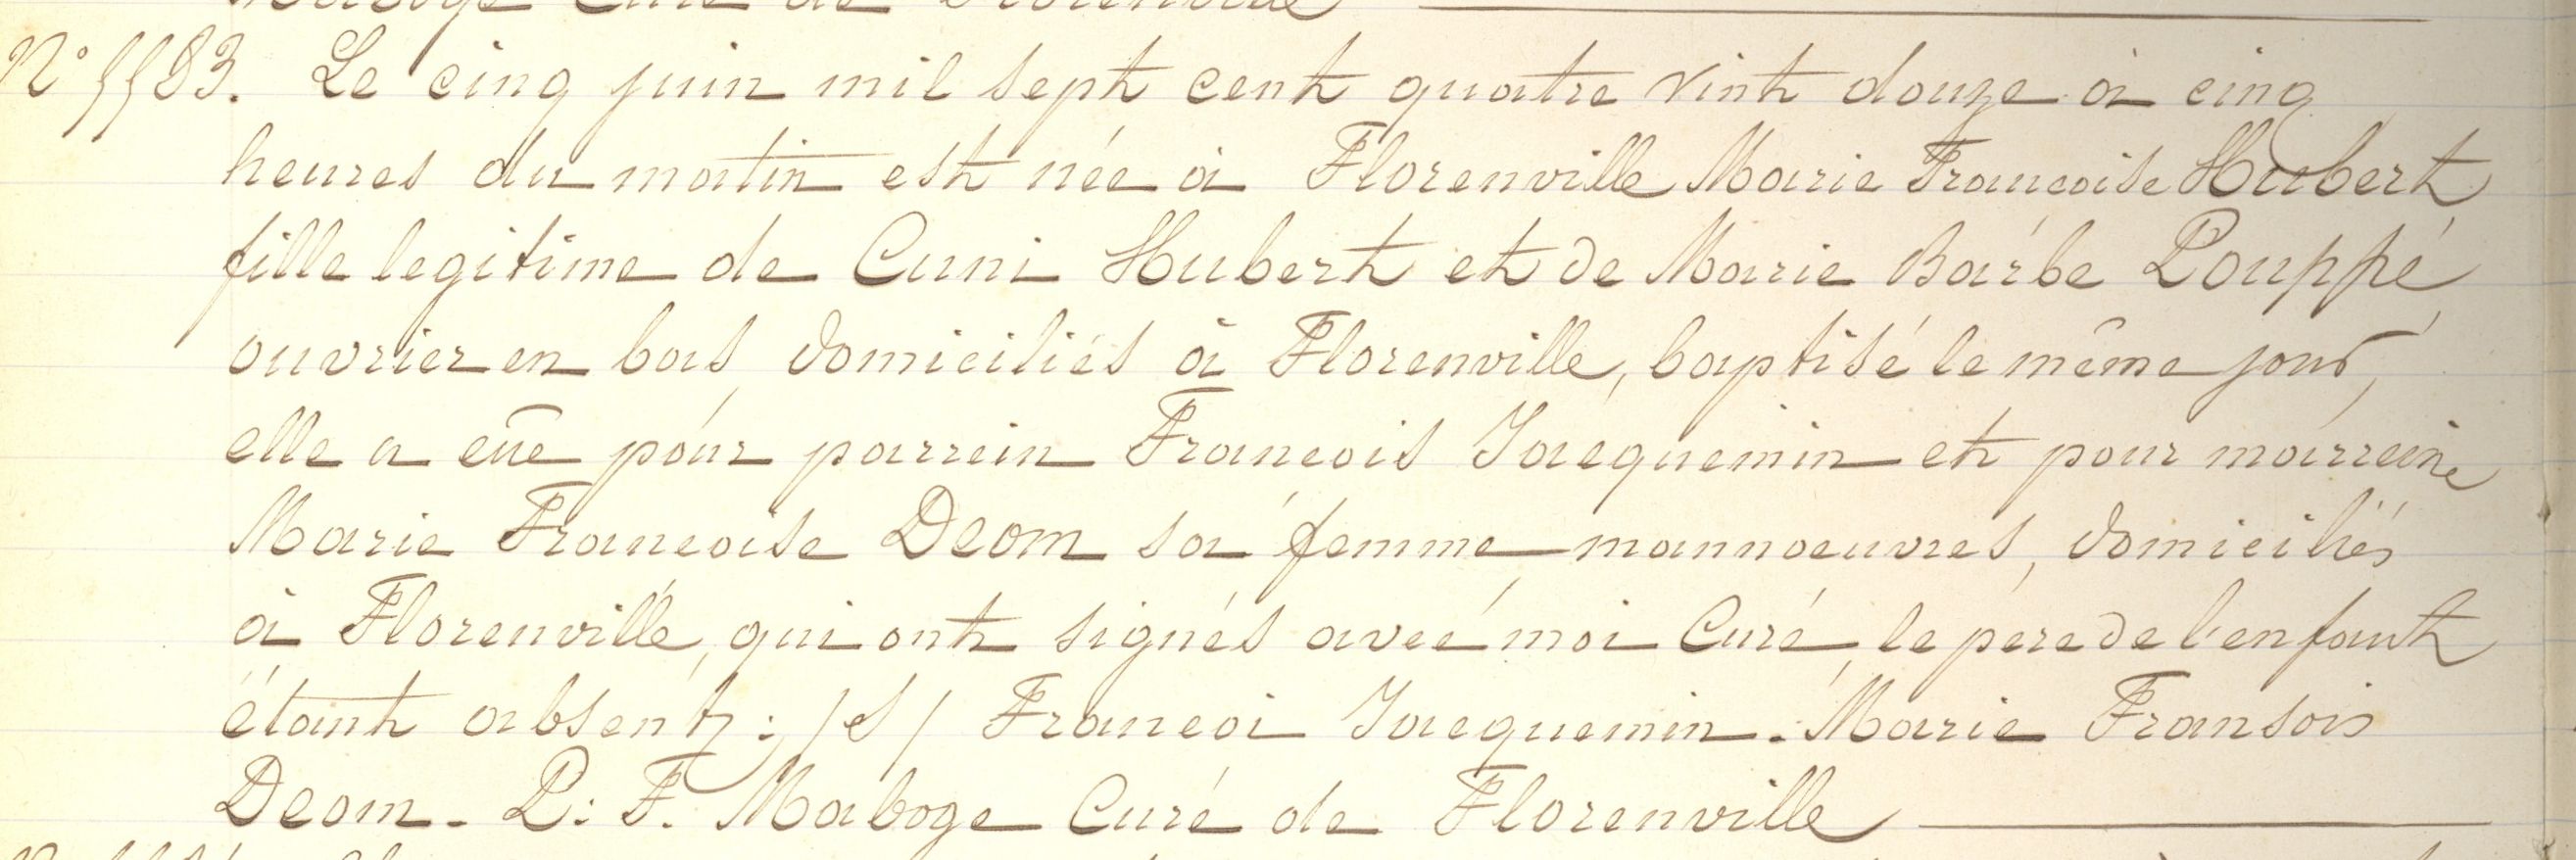 Maboge Curé de Florenville
N° 5583. Le cinq juin mil sept cent quatre vint douze à cinq
heures du matin est née à Florenville Marie Francoise Hubert
fille legitime de Cuni Hubert et de Marie Barbe Pouppé
ouvrier en bas domiciliés à Florenville, baptisé le même jour,
elle a eûe pour parrein Francois Jacquemin et pour marreine
Marie Francoise Deom sa femme mannoeuvres, domiciliés
à Florenville, qui ont signés avec moi Curé, le pere de l'enfant
étant absent; : /S/ Francoi Jacquemin. Marie Fransois
Deom. P. F. Maboge Curé de Florenville